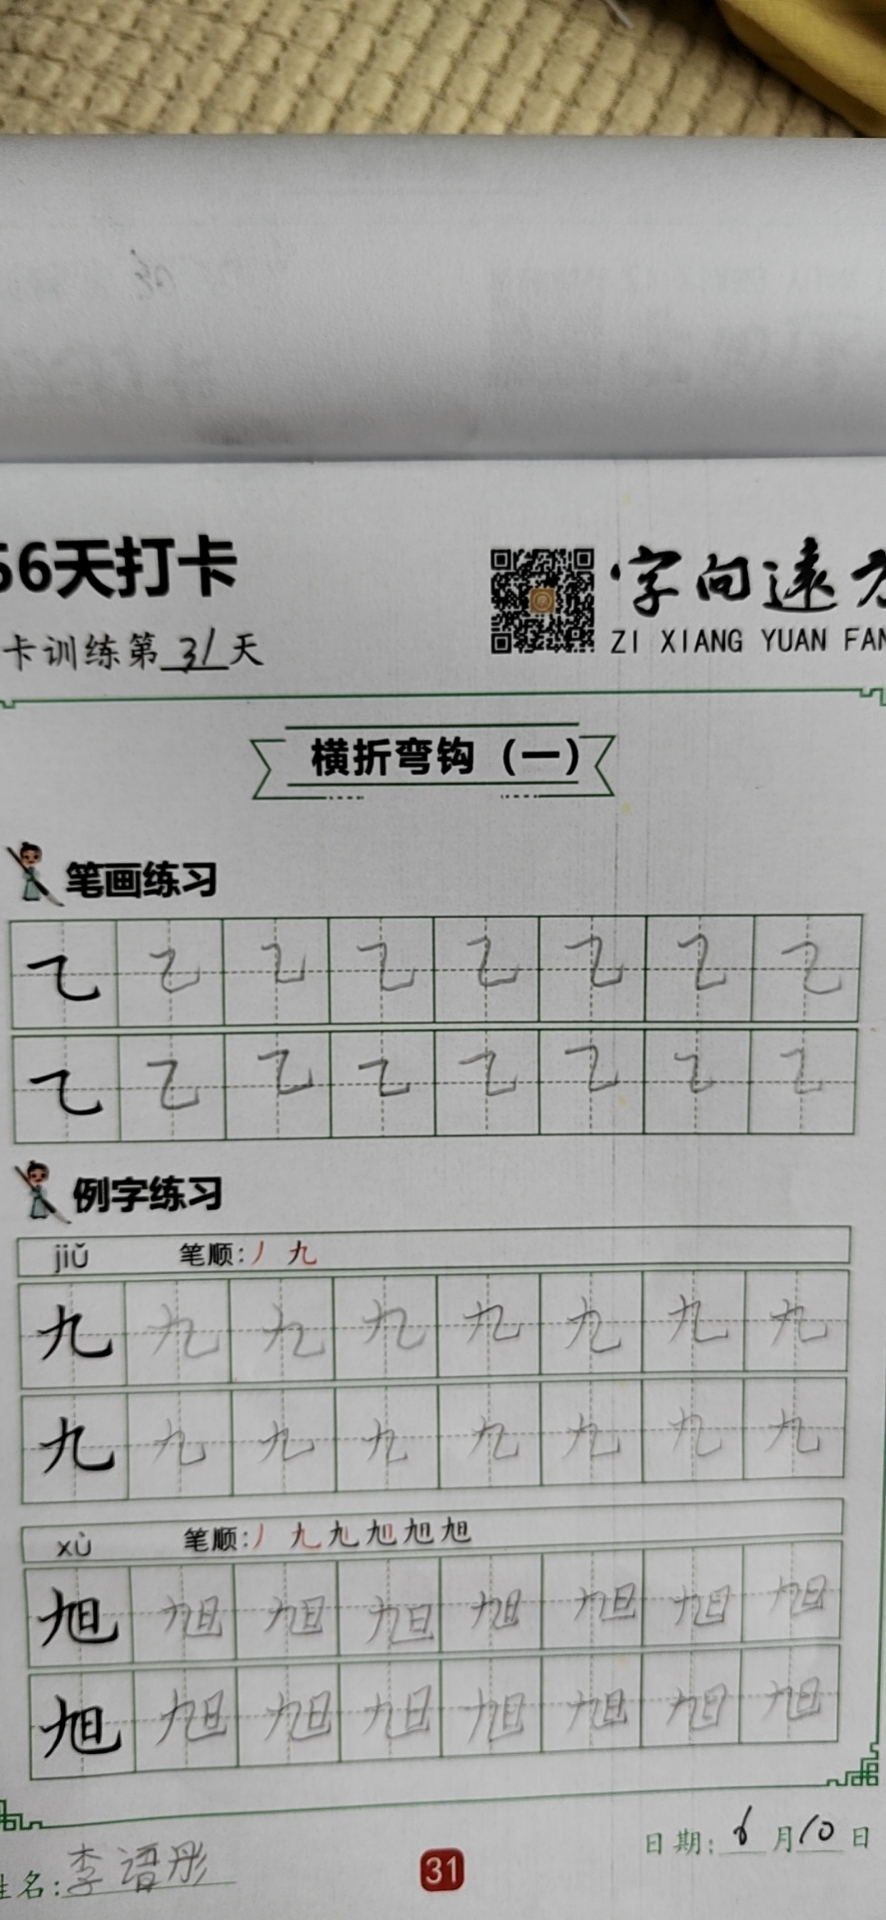 56天打卡
字向远方
卡训练第31天
ZI XIANG YUAN FAN
横折弯钩（一）
笔画练习
㇈ ㇈ ㇈ ㇈ ㇈ ㇈ ㇈ ㇈
㇈ ㇈ ㇈ ㇈ ㇈ ㇈ ㇈ ㇈
例字练习
jiǔ 笔顺：丿 九
九 九 九 九 九 九 九 九
九 九 九 九 九 九 九 九
xù 笔顺：丿 九 旭 旭 旭 旭
旭 旭 旭 旭 旭 旭 旭 旭
旭 旭 旭 旭 旭 旭 旭 旭
姓名：李语彤
31
日期：6月10日